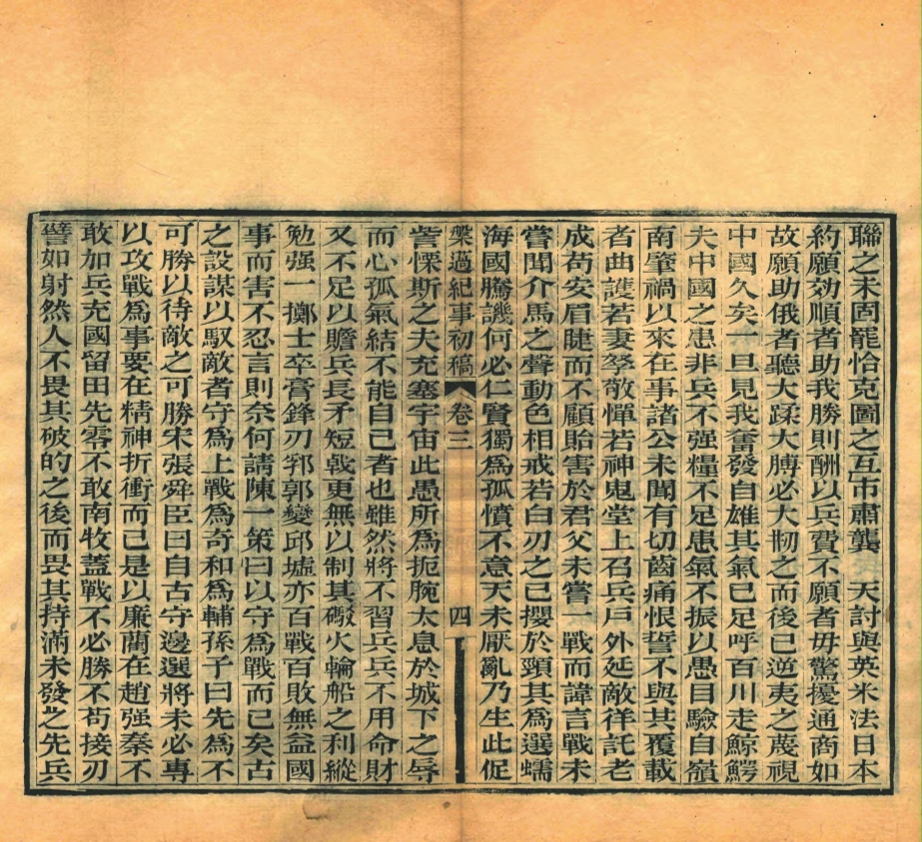 聯之未固寵恰克圖之互市肅龔　天討與英米法日本
約願効順者助我勝則酬以兵費不願者毋驚擾通商如
故願助俄者聽大蹂大膊必大剏之而後已逆夷之蔑視
中國久矣一旦見我奮發自雄其氣已足呼百川走鯨鰐
夫中國之患非兵不强糧不足患氣不振以愚目驗自嶺
南肇禍以來在事諸公未聞有切齒痛恨誓不與其覆載
者曲謢若妻孥敬憚若神鬼堂上召兵戶外延敵祥託老
成苟安眉睫而不顧貽害於君父未嘗一戰而諱言戰未
嘗聞介馬之聲動色相戒若白刃之已攖於頸其爲選蠕
海國騰譏何必仁賢獨爲孤憤不意天未厭亂乃生此促
槃薖紀事初稿　卷三　四
訾慄斯之夫充塞宇宙此愚所爲扼腕太息於城下之辱
而心孤氣結不能自已者也雖然將不習兵兵不用命財
又不足以贍兵長矛短戟更無以制其礮火輪船之利縱
勉强一擲士卒膏鋒刃郛郭變邱墟亦百戰百敗無益國
事而害不忍言則奈何請陳一策曰以守爲戰而已矣古
之設謀以馭敵者守爲上戰爲奇和爲輔孫子曰先爲不
可勝以待敵之可勝宋張舜臣曰自古守邊選將未必專
以攻戰爲事要在精神折衝而已是以廉藺在趙强秦不
敢加兵充國留田先零不敢南牧蓋戰不必勝不苟接刃
譬如射然人不畏其破的之後而畏其持滿未發之先兵